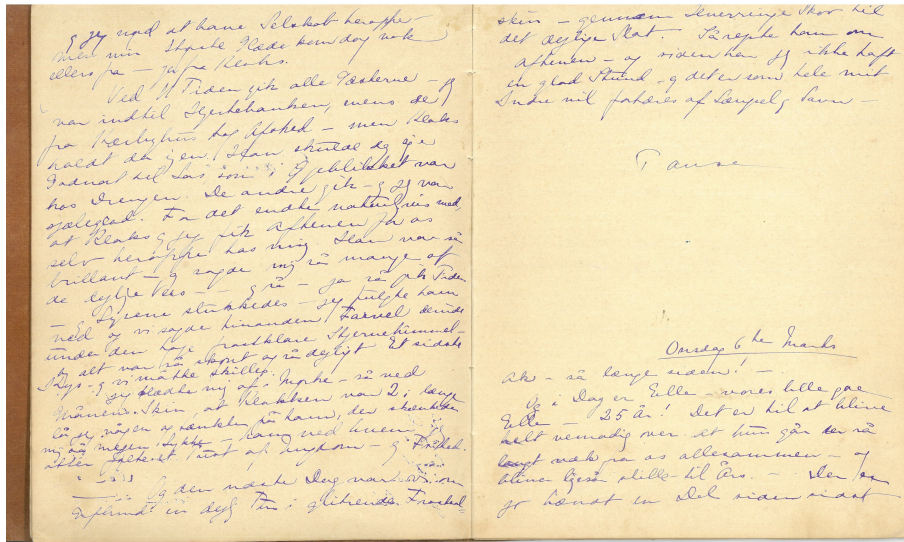 og jeg nød at have Selskab heroppe –
men min største Glæde kom dog nok
ellers fra – ja fra Klaks.
Ved 11 Tiden gik alle Gæsterne – jeg
var indtil Hjertebanken, mens de
fra Værbyhus tog Afsked – men Klaks
holdt da igen. Han skulde
som i Øjeblikket var
hos Drengen. De andre gik – og jeg var
sjæleglad. For det endte naturligvis med,
at Klaks og jeg fik Aftenen for os
selv heroppe hos mig. Han var så
brillant – og sagde mig så mange af
de Vers – – og så – ja så gik Tiden
– Lysene slukkedes – jeg fulgte ham
ned og vi sagde hinanden Farvel
under den høje frostklare Stjernehimmel –
og alt var så skønt og så dejligt. Et sidste
Kys – og vi måtte skilles.
Jeg klædte mig af i Mørke – så ved
Månens Skin, at Klokken var 2; længe
lå jeg vågen og tænkte på ham, der skænker
mig så megen Lykke –
af Ungdom – og
Og den næste Dag var
en dejlig Tur i glitrende
skin – gennem Snerringe Skov til
det dejlige Slot. Så rejste han om
Aftenen – og siden har jeg ikke haft
en glad Stund – og det er som hele mit
Indre vil fortæres af Længsel og Savn –
Pause
Onsdag 6te Marts
Ak – så længe siden! –
Og i Dag er Elle – vores lille gae
Elle – 25 År! Det er til at blive
helt vemodig over at hun går så
langt væk fra os allesammen – og
bliver ligeså stille til Års. – Der er
jo hændt en Del siden sidst